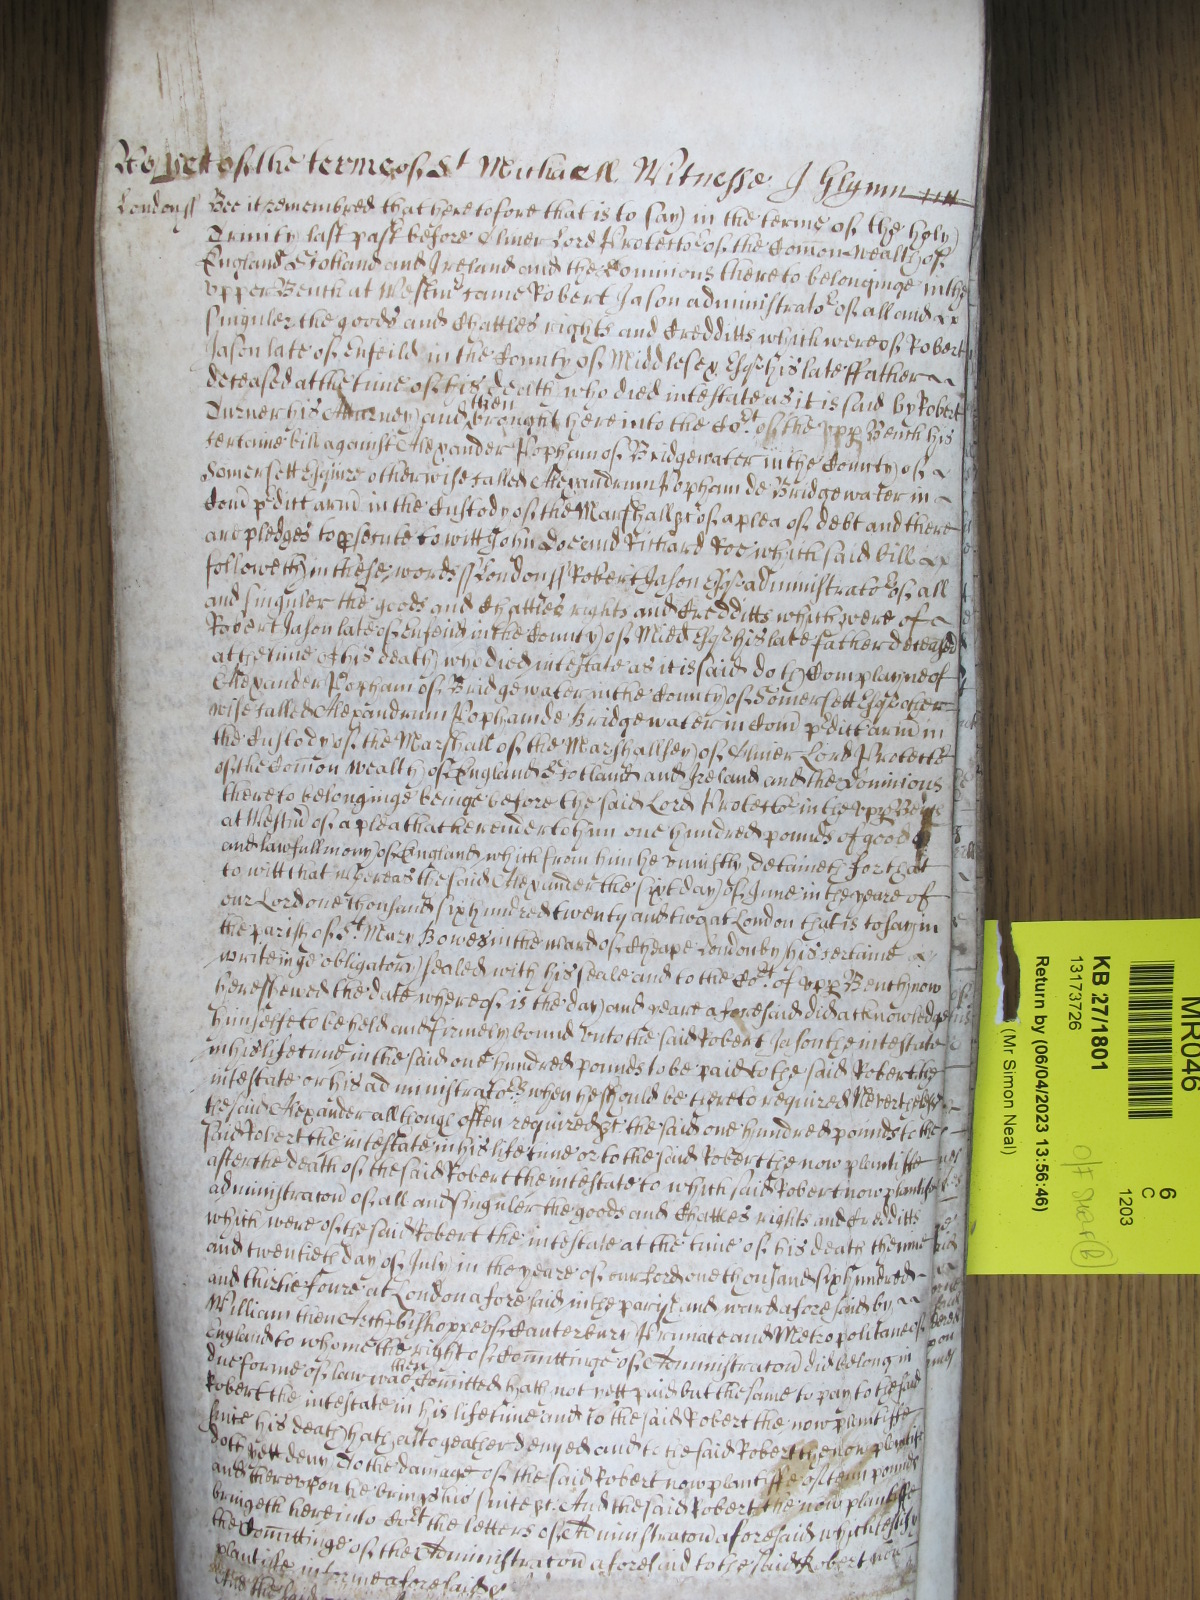 As yett of the terme of St Michaell Witnesse J Glynn
Londonss Bee it remembred that heretofore that is to say in the terme of the holy
Trinity last past before Oliver Lord Protector of the Comon Wealth of
England Scotland and Ireland and the Dominions thereto belonginge in the
upper Bench at Westmr came Robert Jason administrator of all and
singuler the goods and Chattles rights and Credditts which were of Robert
Jason late of Enfeild in the County of Middlesex Esqr his late ffather
deceased at the time of his death who died intestate as it is said by Robert
Turner his Attorney and then brought here into the Cort of the upp Bench his
certaine bill against Alexander Popham of Bridgewater in the County of
Somersett Esquire otherwise called Alexandrum Popham de Bridgewater in
Com pdict arm in the Custody of the Marshall &c of a plea of debt and there
are pledges to psecute to witt John Doe and Richard Roe which said bill
followeth in these words ss Londonss Robert Jason Esqr administrator of all
and singuler the goods and Chattles rights and Credditts which were of
Robert Jason late of Enfeild in the County of Midd Esqr his late father deceased
at the time of his death who died intestate as it is said doth Complayne of
Alexander Popham of Bridgewater in the County of Somersett Esqr other
wise called Alexandrum Popham de Bridgewater in Com pdict arm in
the Custody of the Marshall of the Marshallsey of Oliver Lord Protector
of the Comon wealth of England Scotland and Ireland and the Dominions
thereto belonginge beinge before the said Lord Protector in the upp Bench
at Westmr of a plea that he render to him one hundred pounds of good
and lawfull mony of England which from him he uniustly detaineth for that
to witt that whereas the said Alexander the sixt day of June in the yeare of
our Lord one thousand six hundred twenty and two at London that is to say in
the parish of St Mary Bowes in the ward of Cheape London by his certaine
writeinge obligatory sealed with his seale and to the Cort of upp Bench now
here shewed the date whereof is the day and yeare aforesaid did acknowledge
himselfe to be held and firmely bound unto the said Robert Jason the intestate
in his life time in the said one hundred pounds to be paid to the said Robert the
intestate or his administrators when he should be thereto required Neverthelesse
the said Alexander although often required &c the said one hundred pounds to the
said Robert the intestate in his life time or to the said Robert the now plantiffe
after the death of the said Robert the intestate to which said Robert now plantiffe
administracon of all and singuler the goods and Chattles rights and Credditts
which were of the said Robert the intestate at the time of his death the nine
and twentieth day of July in the yeare of our Lord one thousand six hundred
and thirtie foure at London aforesaid in the parish and ward aforesaid by
William then Archbishoppe of Canterbury Primate and Metropolitane of
England to whome the right of Comittinge of Administracon did belong in
due forme of law was then Comitted hath not yett paid but the same to pay to the said
Robert the intestate in his life time and to the said Robert the now plantiffe
since his death hath altogeather denyed and to the said Robert the now plantiffe
doth yett deny To the damage of the said Robert now plantiffe of tenn pounds
and thereupon he brings his suite &c And the said Robert the now plantiffe
bringeth here into Cort the letters of Administracon aforesaid which testify
the Comittinge of the Administracon aforesaid to the said Robert now
plantiffe in forme aforesaid &c
And the said
MR046
KB 27/1801
13173726
Return by (06/04/2023 13:56:46)
(Mr Simon Neal)
6
C
1203